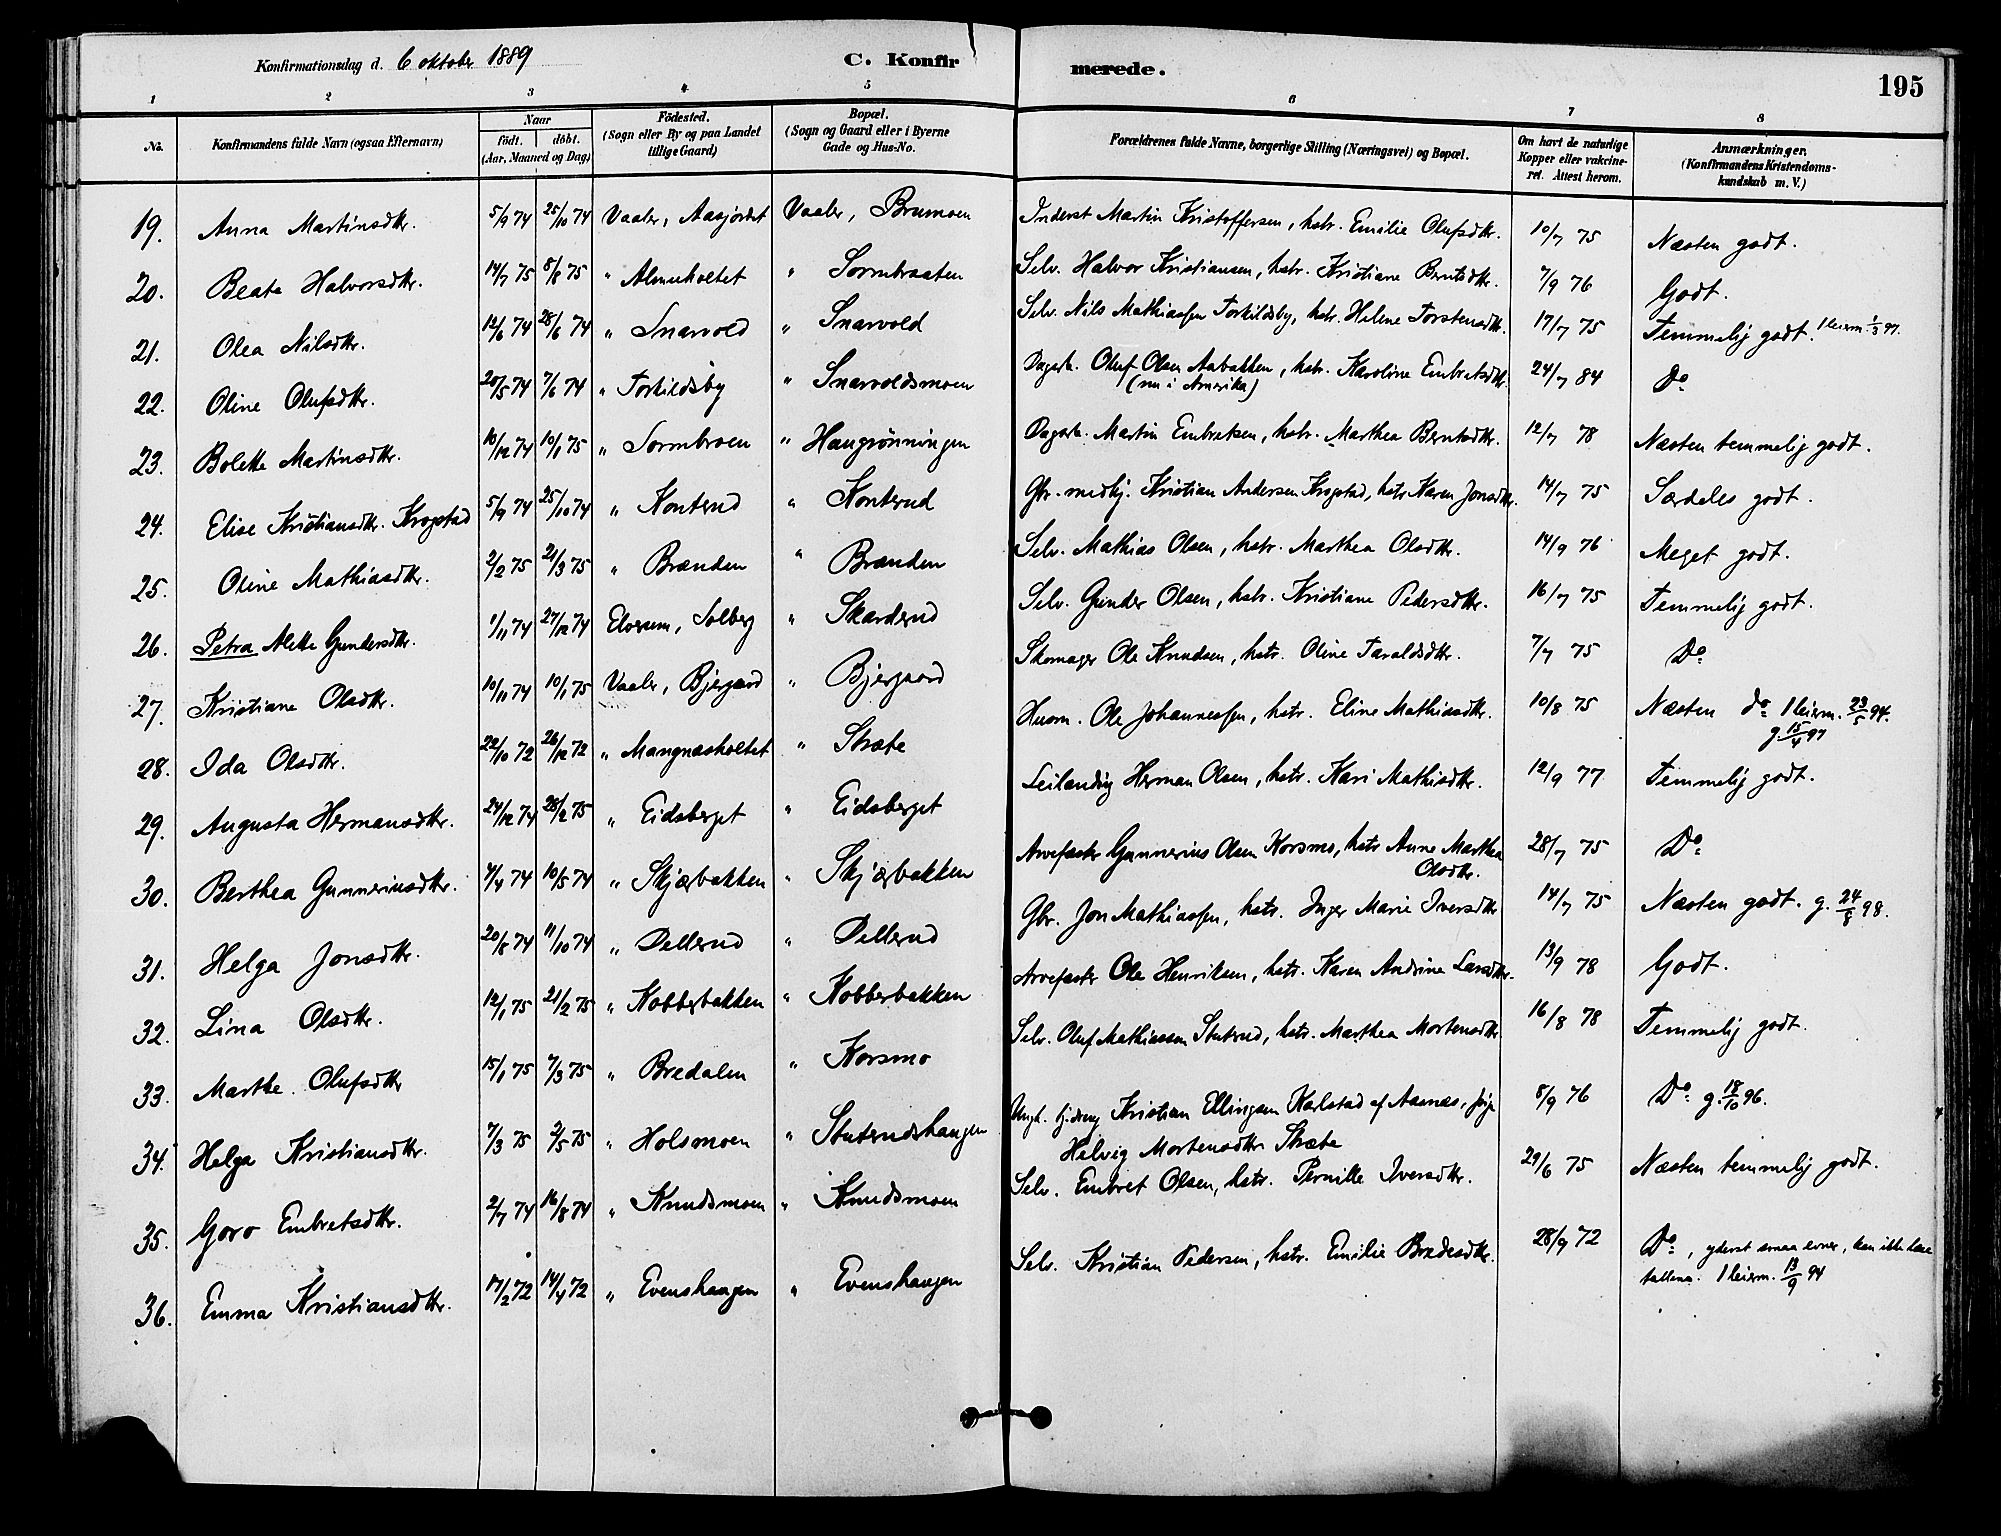 Konfirmationsdag d. 6 oktober 1889 C. Konfirmerede. 195
1 2 3 4 5 6 7 8
No. Konfirmandens fulde Navn (ogsaa Efternavn) Naar födt. döbt. (Aar, Maaned og Dag) Födested. (Sogn eller By og paa Landet tillige Gaard) Bopæl. (Sogn og Gaard eller i Byerne Gade og Hus-No. Forældrenes fulde Navne, borgerlige Stilling (Næringsvei) og Bopæl. Om havt de naturlige Kopper eller vakcineret. Attest herom. Anmærkninger. (Konfirmandens Kristendomskundskab m. V.)
19. Anna Martinsdtr. 5/9 74 25/10 74 Vaaler, Aasjordet Vaaler, Brumoen Inderst Martin Kristoffersen, hstr. Emilie Olufsdtr. 10/7 75 Næsten godt.
20. Beate Halvorsdtr. 14/7 75 8/8 75 " Almeholtet " Sormbraaten Selv. Halvor Kristiansen, hstr. Kristiane Berntsdtr. 7/9 76 Godt.
21. Olea Nilsdtr. 12/6 74 28/6 74 " Snarvold " Snarvold Selv. Nils Mathiassen Torkildsby, hstr. Helene Torstensdtr. 17/7 75 Temmelig godt. 1 leierm. 1/3 97.
22. Oline Olufsdtr. 20/5 74 7/6 74 " Torkildsby " Snarvoldsmoen Dagarb. Oluf Olsen Aabakken, hstr. Karoline Embretsdtr. 24/7 84 Do
(nu i Amerika)
23. Bolette Martinsdtr. 10/12 74 10/1 75 " Sormbroen " Haugrönningen Dagarb. Martin Embretsen, hstr. Marthea Berntsdtr. 12/7 78 Næsten temmelig godt.
24. Elise Kristiansdtr. Krogstad 5/9 74 25/10 74 " Konterud " Konterud Gbr. medhj. Kristian Andersen Krogstad, hstr Karen Jonsdtr. 14/7 75 Særdeles godt.
25. Oline Mathiasdtr. 2/2 75 21/3 75 " Brænden " Brænden Selv. Mathias Olsen, hstr. Marthea Olsdtr. 14/9 76 Meget godt.
26. Petra Alette Gundersdtr. 1/11 74 27/12 74 Elverum, Solberg " Skarderud Selv. Gunder Olsen, hstr. Kristiane Pedersdtr. 16/7 75 Temmelig godt.
27. Kristiane Olsdtr. 10/11 74 10/1 75 Vaaler, Bjergaard " Bjergaard Skomager Ole Knudsen, hstr. Oline Taraldsdtr. 7/7 75 Do
28. Ida Olsdtr. 22/10 72 26/12 72 " Mangnæsholtet " Stræte Husm. Ole Johannessen, hstr. Eline Mathiasdtr. 10/8 75 Næsten do 1 leierm. 23/5 94.
g. 15/4 97
29. Augusta Hermansdtr. 24/12 74 28/2 75 " Eidsberget " Eidsberget Leilænding Herman Olsen, hstr. Kari Mathisdtr. 12/9 77 Temmelig godt.
30. Berthea Gunneriusdtr. 7/4 74 10/5 74 " Skjærbakken " Skjærbakken Arvefæster Gunnerius Olsen Korsmo, hstr Anne Marthea Olsdtr. 28/7 75 Do
31. Helga Jonsdtr. 20/8 74 11/10 74 " Pellerud " Pellerud Gbr. Jon Mathiassen, hstr. Inger Marie Iversdtr 14/7 75 Næsten godt. g. 24/8 98.
32. Lina Olsdtr. 12/1 75 21/2 75 " Kobberbakken " Kobberbakken Arvefæster Ole Henriksen, hstr. Karen Andrine Larsdtr. 13/9 78 Godt.
33. Marthe Olufsdtr 15/1 75 7/3 75 " Bredalen " Korsmo Selv. Oluf Mathiassen Stuterud, hstr. Marthea Mortensdtr 16/8 78 Temmelig godt.
34. Helga Kristiansdtr. 7/3 75 2/5 75 " Holsmoen " Stuterudshaugen Ungk. Kristian Ellingsen Karlstad af Aasnæs, pige 8/9 76 Do g. 18/10 96.
Helvig Mortensdtr Stræte
35. Goro Embretsdtr. 2/7 74 16/8 74 " Knudsmoen " Knudsmoen Selv. Embret Olsen, hstr. Pernille Iversdtr. 29/6 75 Næsten temmelig godt.
36. Emma Kristiansdtr. 17/2 72 14/4 72 " Evenshaugen " Evenshaugen Selv. Kristian Pedersen, hstr. Emilie Bredesdtr. 28/9 72 Do, yderst smaa evner, kan ikke læse
tallene. 1 leierm. 13/9 94